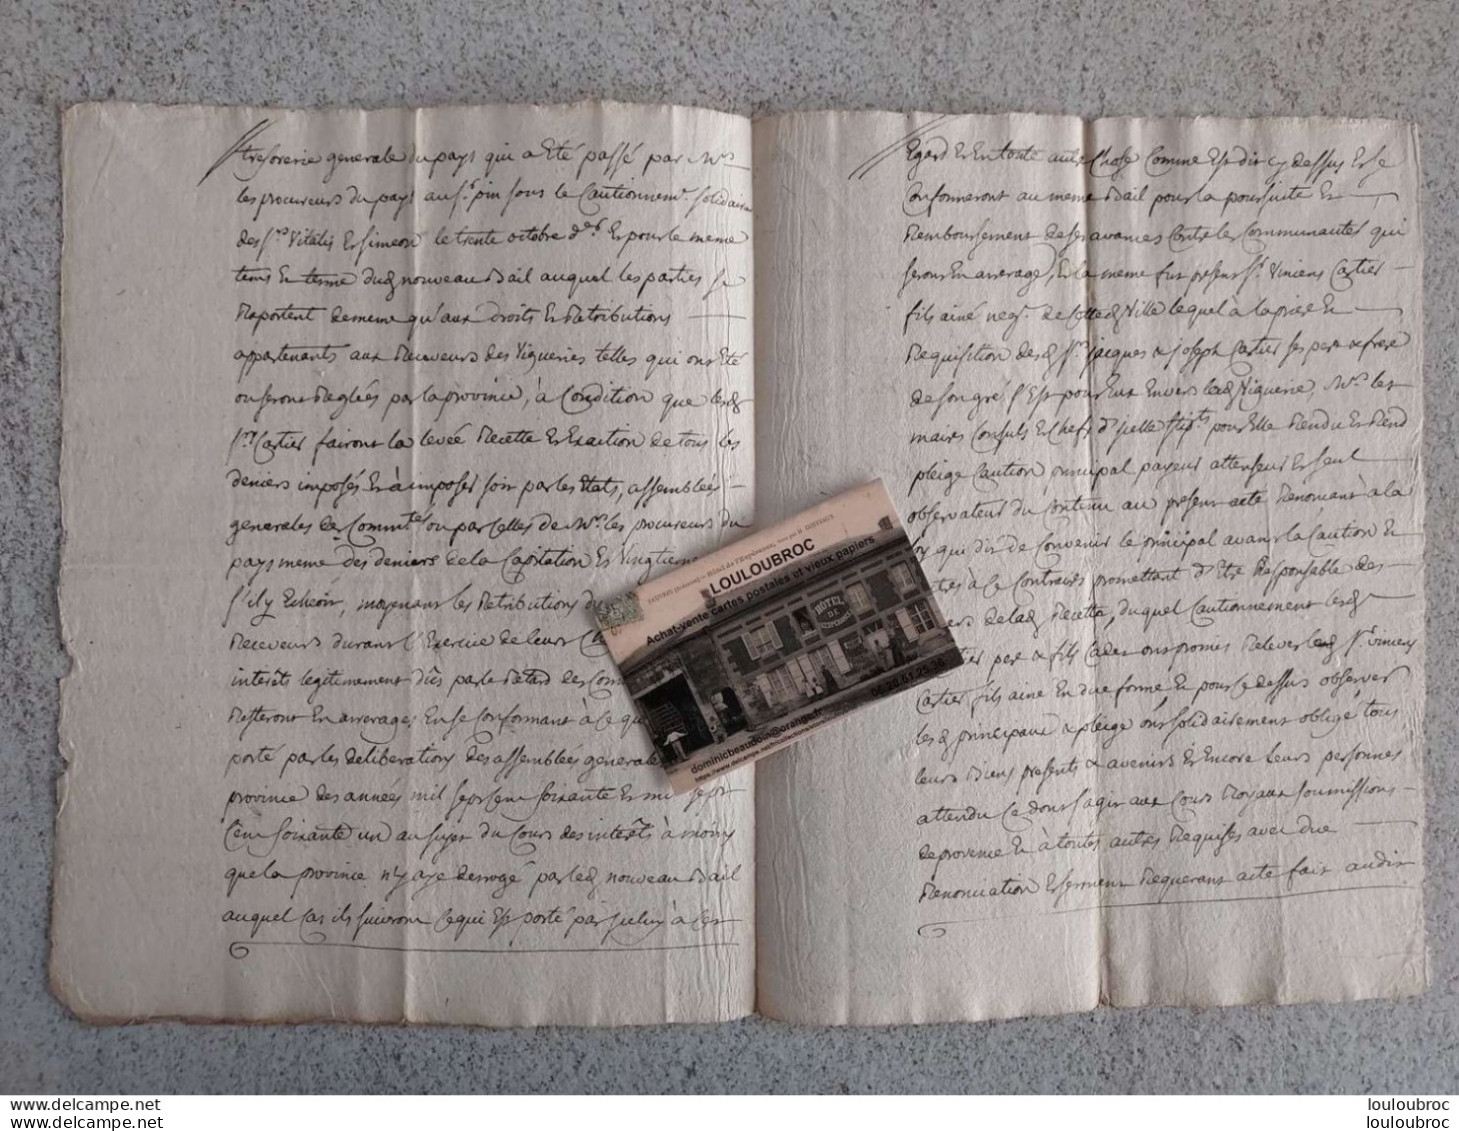 tresorerie generale du pays qui a Eté passé par Mrs
les procureurs du pays au Sr. pin sous le Cautionnemt. solidaire
des Srs Vitalis Et Simeon le trente octobre der Et pour le meme
tems Et terme dud nouveau Bail auquel les parties se
Raportent de meme qu'aux droits Et Retributions
appartenants aux Receveurs des Vigueries telles qui ont Eté
ou seront Reglées par la province, à Condition que lesd
Srs Cartier fairont la levée Recette Et Exaction de tous les
deniers imposés Et à imposer soit par les Etats, assemblées
generales des Commtés ou par Celles de Mrs les procureurs du
pays meme des deniers de la Capitation Et Vingtieme
s'il y Echeoit, moyenant les Retributions
Receveurs durant l'Exercice de leurs
interêts legitimement dûs par le Retard des
Resteront En arrerages En se Conformant à ce
porté par les deliberations des assemblées generales
province des années mil sept cent soixante Et mil sept
Cent soixante un au sujet du Cours des interêts à moins
que la province n'y aye derrogé par led nouveau Bail
auquel Cas ils suivront Ce qui Est porté par juluy à Cet
Egard Et En toute autre Chose Comme Est dit cy dessus Et se
Conformeront au meme Bail pour la poursuite Et
Remboursement de ses avances Contre les Communautés qui
seront En arrerages, Et la meme fut present Sr. Viniens Cartier
fils ainé negt. de Cette d Ville lequel à la priere Et
Requisition desd Srs. jacques & joseph Cartier ses pere & frere
de son gré s'Est pour Eux Envers lad Viguerie, Mrs les
maires Consuls Et Chefs d'jcelle stipts pour Elle Rendu Et Rend
pleige Caution principal payeur attenseur Et seul
observateur du Contenu au present acte Renonçant à la
loy qui dit de Convenir le principal avant la Caution Et
à ce Contraires promettant d'Etre Responsable des
de lad Recette, duquel Cautionnement lesd
pere & fils Cadet ont promis Relever led Sr. Viniens
Cartier fils ainé En due forme Et pour Ce dessus observer
les d principaux & pleige ont solidairement obligé tous
leurs Biens presents & avenirs Et Encore leurs personnes
attendu Ce dont s'agit aux Cours Royaux soumissions
de provence Et à toutes autres Requises avec due
Renonciation Et serment Requerant acte fait audit
LOULOUBROC
Achat-vente cartes postales et vieux papiers
HÔTEL
DE
06.20.61.25.36
dominicbeaudoin@orange.fr
www.delcampe.net/Seller/louloubroc
www.delcampe.net
louloubroc
louloubroc